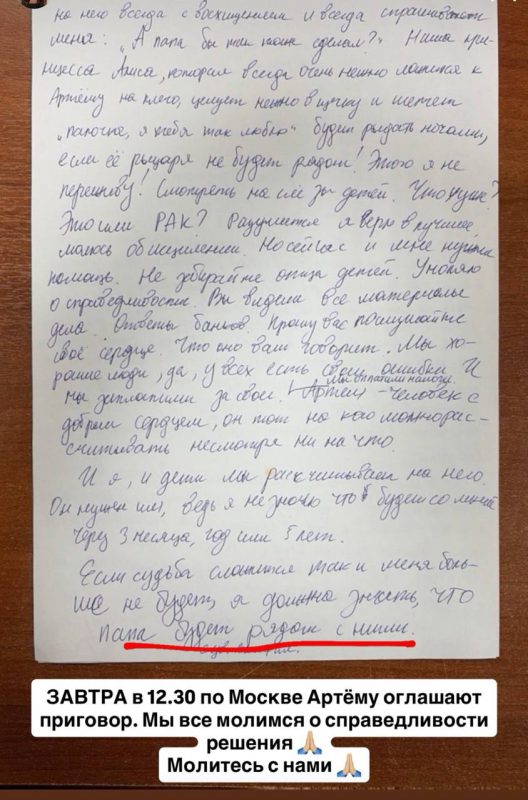 на него всегда с восхищением и всегда спрашивает
меня: „А папа бы так тоже сделал?" Наша прин-
цесса Алиса, которая всегда очень нежно ложится к
Артёму на плечо, целует нежно в щечку и шепчет
„папочка, я тебя так люблю" будет рыдать ночами,
если её рыцаря не будет рядом! Этого я не
переживу! Смотреть на слёзы детей. Что хуже?
Это или РАК? Разумеется я верю в лучшее
молюсь об исцелении. Но сейчас и мне нужна
помощь. Не забирайте отца детей. Умоляю
о справедливости. Вы видели все материалы
дела. Ответы банков. Прошу вас послушайте
своё сердце. Что оно вам говорит. Мы хо-
рошие люди, да, у всех есть свои ошибки. И
мы заплатили за свои. Мы оплатили налоги. Артём - человек с
добрым сердцем, он тот на кого можно рас-
считывать несмотря ни на что.
И я, и дети мы рассчитываем на него.
Он нужен им, ведь я не знаю что будет со мной
через 3 месяца, год или 5 лет.
Если судьба сложится так и меня боль-
ше не будет, я должна знать, что
папа будет рядом с ними.
ЗАВТРА в 12.30 по Москве Артёму оглашают
приговор. Мы все молимся о справедливости
решения 🙏🏼
Молитесь с нами 🙏🏼